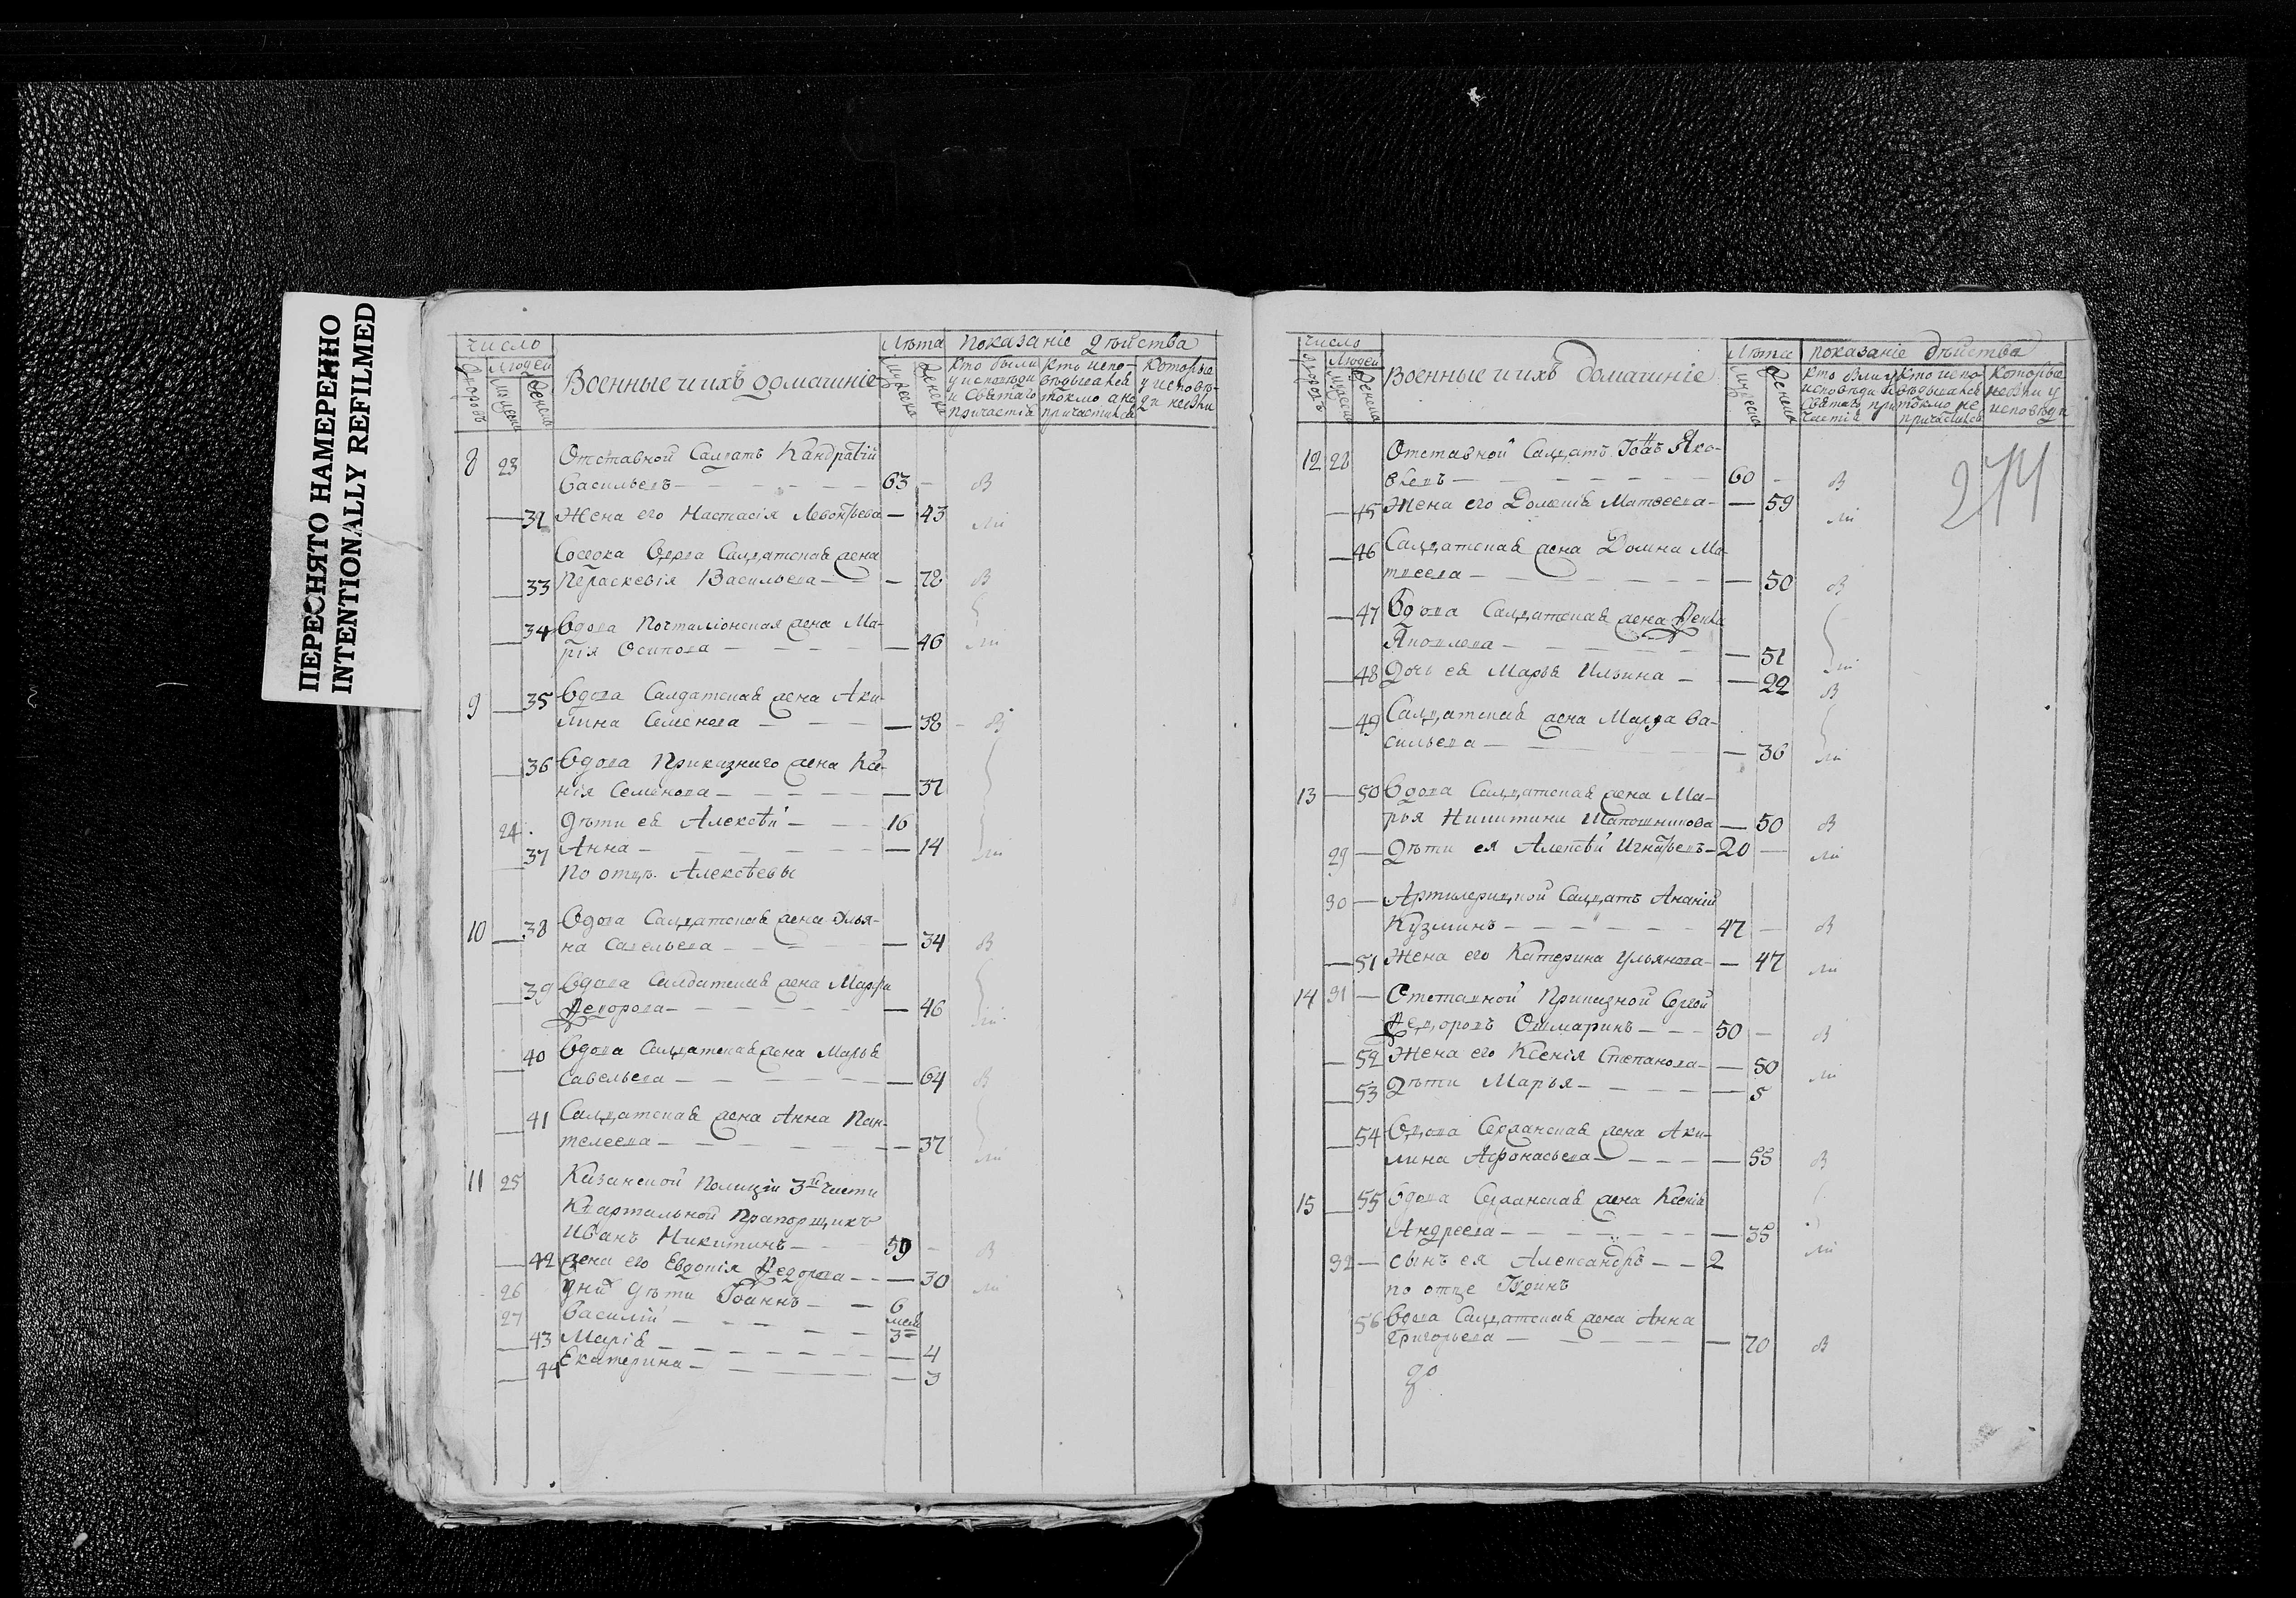 ПЕРЕСНЯТО НАМЕРЕННО
INTENTIONALLY REFILMED
число Лѣта Показаніе дѣйства
Людей
Военные и ихъ домашніе
кто были у исповѣди и святаго причастія
кто исповѣдывался токмо а не причастился
которые у исповѣди не были
8 23 Отставной Салдатъ Кандратій
Васильевъ — 63 —
— 32 Жена его Настасія Левонтьева — 43
Вдова Салдатская жена
— 33 Параскевія Васильева — 72
— 34 Вдова Почталіонская жена Ма-
рія Осипова — 46
9 — 35 Вдова Салдатская жена Аки-
лина Семенова — 38
— 36 Вдова Приказнаго жена
Семенова — 37
24 Дѣти ея Алексѣй — 16
— 37 Анна — 14
По отцѣ Алексѣевы
10 — 38 Вдова Салдатская жена Улья-
на Савельева — 34
— 39 Вдова Салдатская жена Марфа
Ѳедорова — 46
— 40 Вдова Салдатская жена Марья
Савельева — 64
— 41 Салдатская жена Анна Пан-
телеева — 37
11 25 Казанской Полиціи 3й части
Квартальной Прапорщикъ
Иванъ Никитинъ — 59 —
— 42 жена его Евдокія Ѳедорова — 30
26 дѣти Іоаннъ — 6
27 Василій — 3
— 43 Марія — 4
— 44 Екатерина — 3
число Лѣта показаніе дѣйства
Людей
Военные и ихъ домашніе
кто были у исповѣди и святаго причастія
кто исповѣдывался токмо не причастился
которые не были у исповѣди
274
12 28 Отставной Салдатъ Яко-
влевъ — 60 —
— 45 Жена его Матвеева — 59
— 46 Салдатская жена Домна Ма-
твеева — 50
— 47 Вдова Салдатская жена
Яковлева — 51
— 48 Дочь ея Марья Ильина — 22
— 49 Салдатская жена Ва-
сильева — 36
13 — 50 Вдова Салдатская жена Ма-
рья Никитина Шапошникова — 50
29 — Дѣти ея Алексѣй Игнатьевъ — 20 —
30 — Артилерицкой Салдатъ Ананій
Кузминъ — 47 —
— 51 Жена его Катерина Ульянова — 47
14 31 — Отставной Приказной Сергѣй
Ѳедоровъ Ошмаринъ — 50 —
— 52 Жена его Ксенія Степанова — 50
— 53 Дѣти Марья — 5
— 54 Вдова жена Аки-
лина Афонасьева — 55
15 — 55 Вдова жена Ксенія
Андреева — 35
32 — сынъ ея Александръ — 2
по отце
56 Вдова Салдатская жена Анна
Григорьева — 70